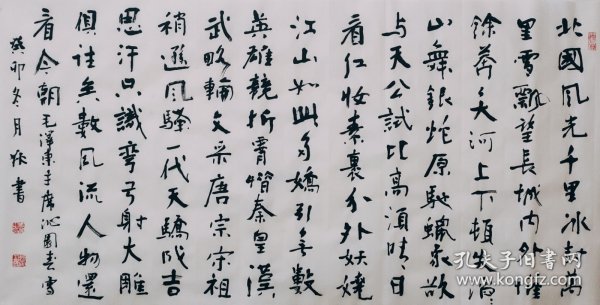 北國风光千里冰封萬
里雪飄望長城内外惟
餘莽大河上下頓失滔
山舞銀蛇原馳蠟象欲
与天公試比高須晴日
看红妆素裹分外妖嬈
江山如此多嬌引無數
英雄競折腰惜秦皇漢
武略輸文采唐宗宋祖
稍遜风騷一代天驕成吉
思汗只識彎弓射大雕
俱往矣數风流人物還
看今朝毛澤東主席沁園春雪
癸卯冬月 書
孔夫子旧书网